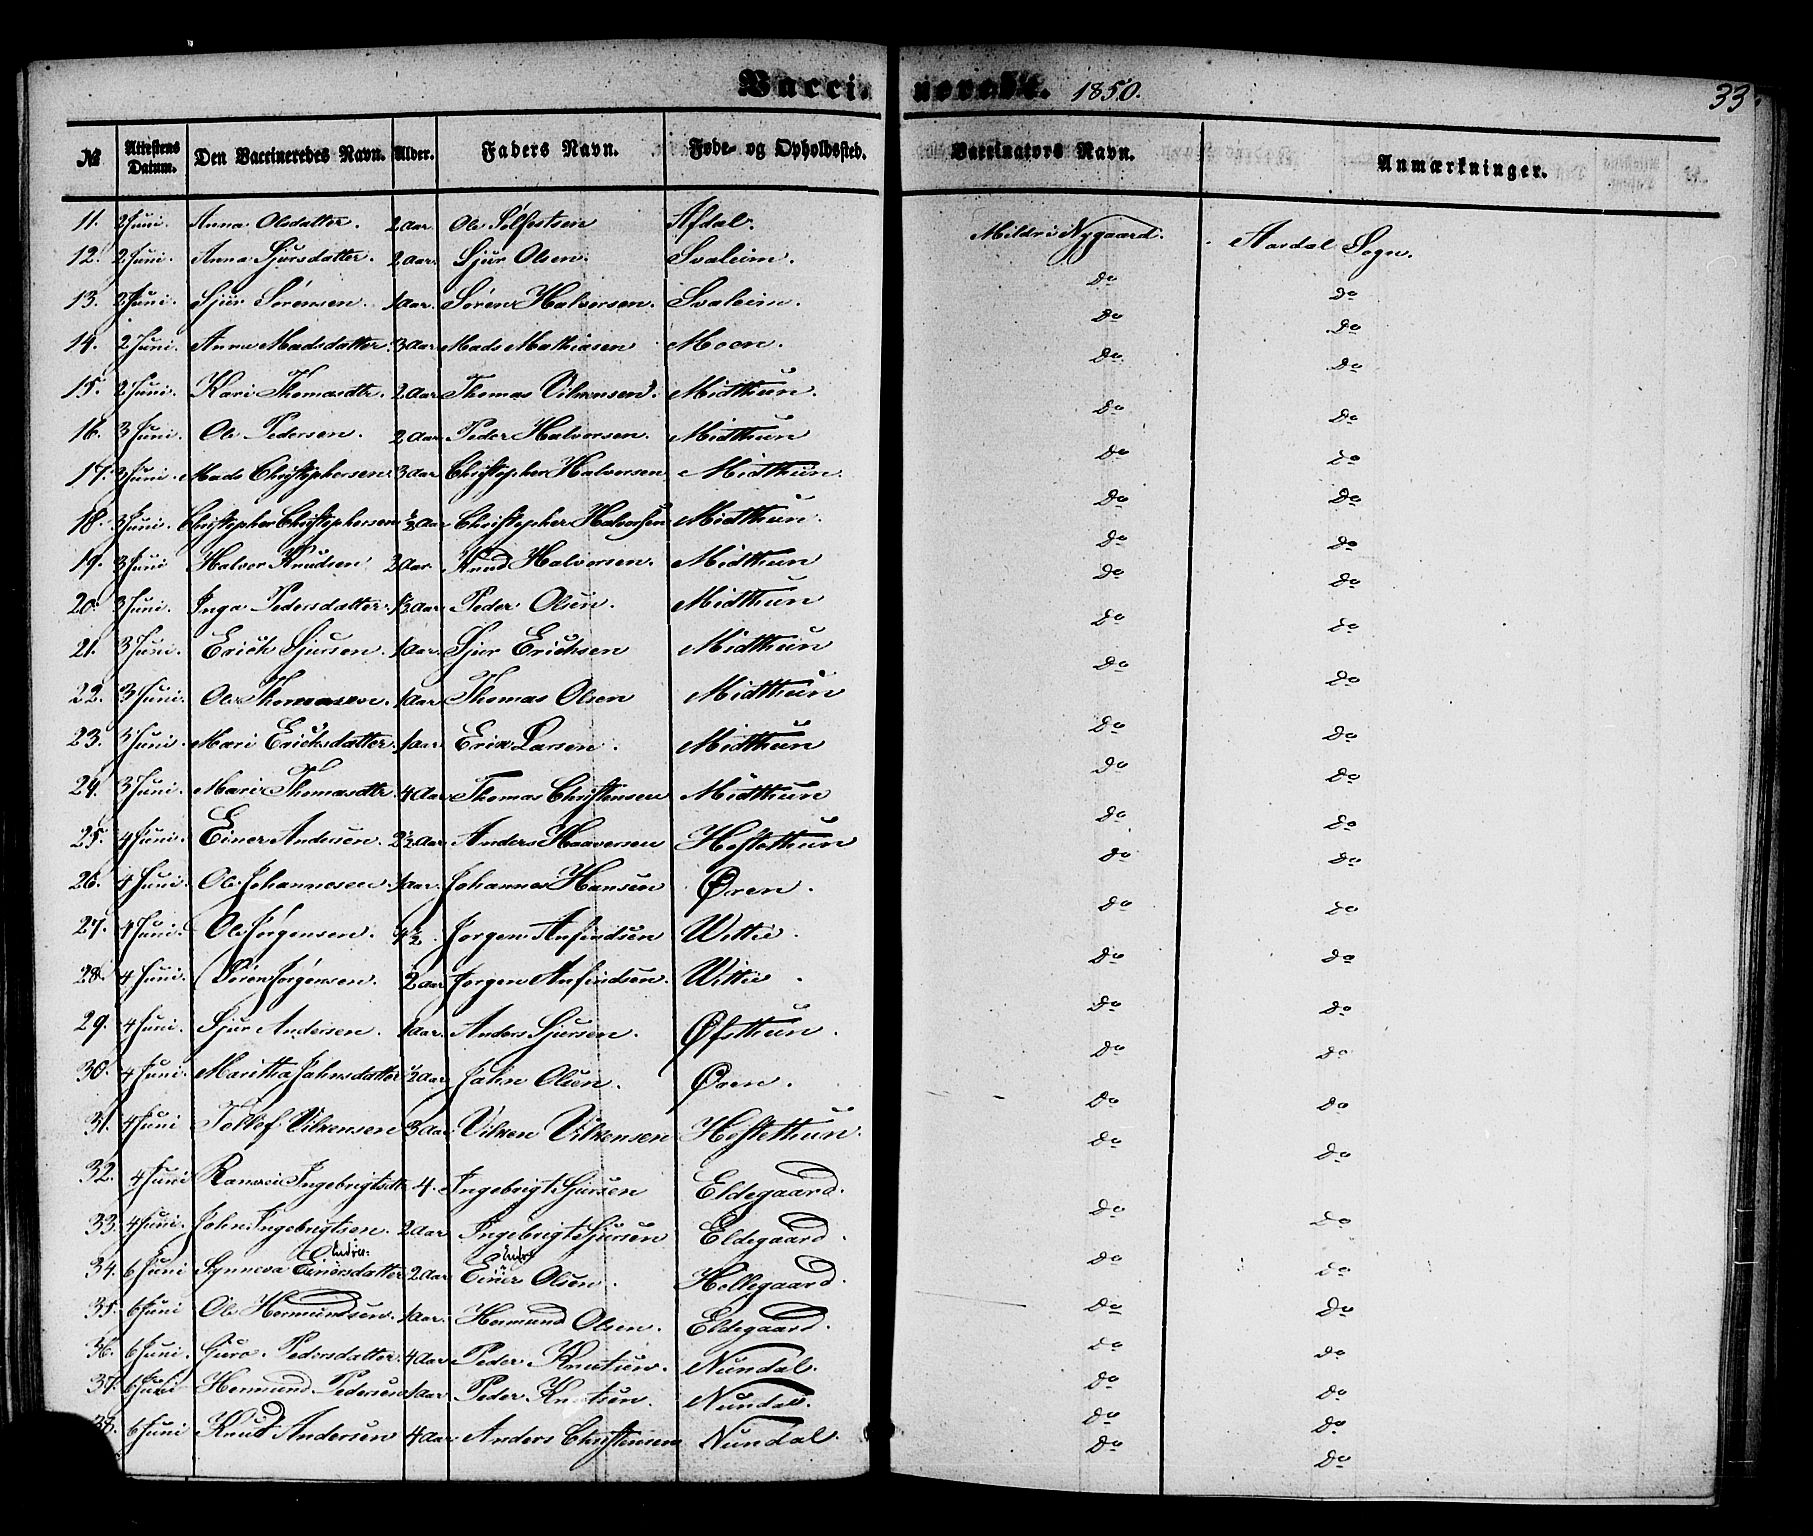 Vaccinerede. 1850. 33.
№ Attestens Datum. Den Vaccineredes Navn. Alder. Faders Navn. Føde- og Opholdssted. Vaccinators Navn. Anmærkninger.
11. 2 Juni. Anna Olsdatter. 2 Aar. Ole Sølfestsen Afdal. Mildri Nygaard. Aardal Sogn.
12. 2 Juni. Anna Sjursdatter. 2 Aar. Sjur Olsen. Svaleim. do do
13. 2 Juni. Sjur Sørensen. 1 Aar. Søren Halvorsen. Svaleim. do do
14. 2 Juni. Anna Madsdatter. 3 Aar Mads Mathiasen Moen. do do
15. 2 Juni. Kari Thomasdtr. 2 Aar Thomas Vilkensen. Midthun. do do
16. 3 Juni. Ole Pedersen. 2 Aar. Peder Halvorsen. Midthun do do
17. 3 Juni. Mads Christophersen 3 Aar Christopher Halvorsen Midthun. do do
18. 3 Juni. Christopher Christophersen 1/3 Aar Christopher Halvorsen Midthun. do do
19. 3 Juni Halvor Knudsen 3 Aar Knud Halvorsen. Midthun do do
20. 3 Juni. Inga Pedersdatter. 1/3 Aar Peder Olsen. Midthun do do
21. 3 Juni. Erich Sjursen. 1 Aar. Sjur Erichsen Midthun do do
22. 3 Juni. Ole Thomassen. 1 Aar Thomas Olsen Midthun do do
23. 3 Juni. Mari Erichsdatter. 1 Aar. Erik Larsen. Midthun do do
24. 3 Juni. Mari Thomasdtr. 4 Aar Thomas Christensen Midthun do do
25. 4 Juni. Einer Andersen. 2 1/2 Aar. Anders Haaversen Hestethun do do
26. 4 Juni. Ole Johannesen. 1 Aar. Johannes Hansen Øren. do do
27. 4 Juni. Ole Jørgensen. 4 1/2. Jørgen Anfindsen Wettie. do do
28. 4 Juni. Sören Jørgensen. 2 Aar Jørgen Anfindsen. Wittie. do do
29. 4 Juni. Sjur Andersen. 1 Aar. Anders Sjursen. Øfsthun. do do
30. 4 Juni. Maritha Jahnsdatter 1/2 Aar Jahn Olsen. Øren. do do
31. 4 Juni Tollef Vilkensen 3 Aar. Vilken Vilkensen Hestethun. do do
32. 4 Juni Ranvei Ingebrigtsdtr 4. Ingebrigt Sjursen Eldegaard. do do
33. 4 Juni. John Ingebrigtsen. 2 Aar Ingebrigt Sjursen Eldegaard. do do
34. 6 Juni Synneva Einersdatter Endre: 2 Aar Einer Endre Olsen. Hellegaard. do do
35. 6 Juni Ole Hermundsen. 1 Aar. Hermund Olsen. Eldegaard. do do
36. 6 Juni. Guro Pedersdatter. 4 Aar Peder Knutsen. Nundal. do do
37. 6 Juni Hermund Pedersen 1 Aar. Peder Knutsen. Nundal. do do
38. 6 Juni Knud Andersen 4 Aar. Anders Christensen Nundal. do do
do do